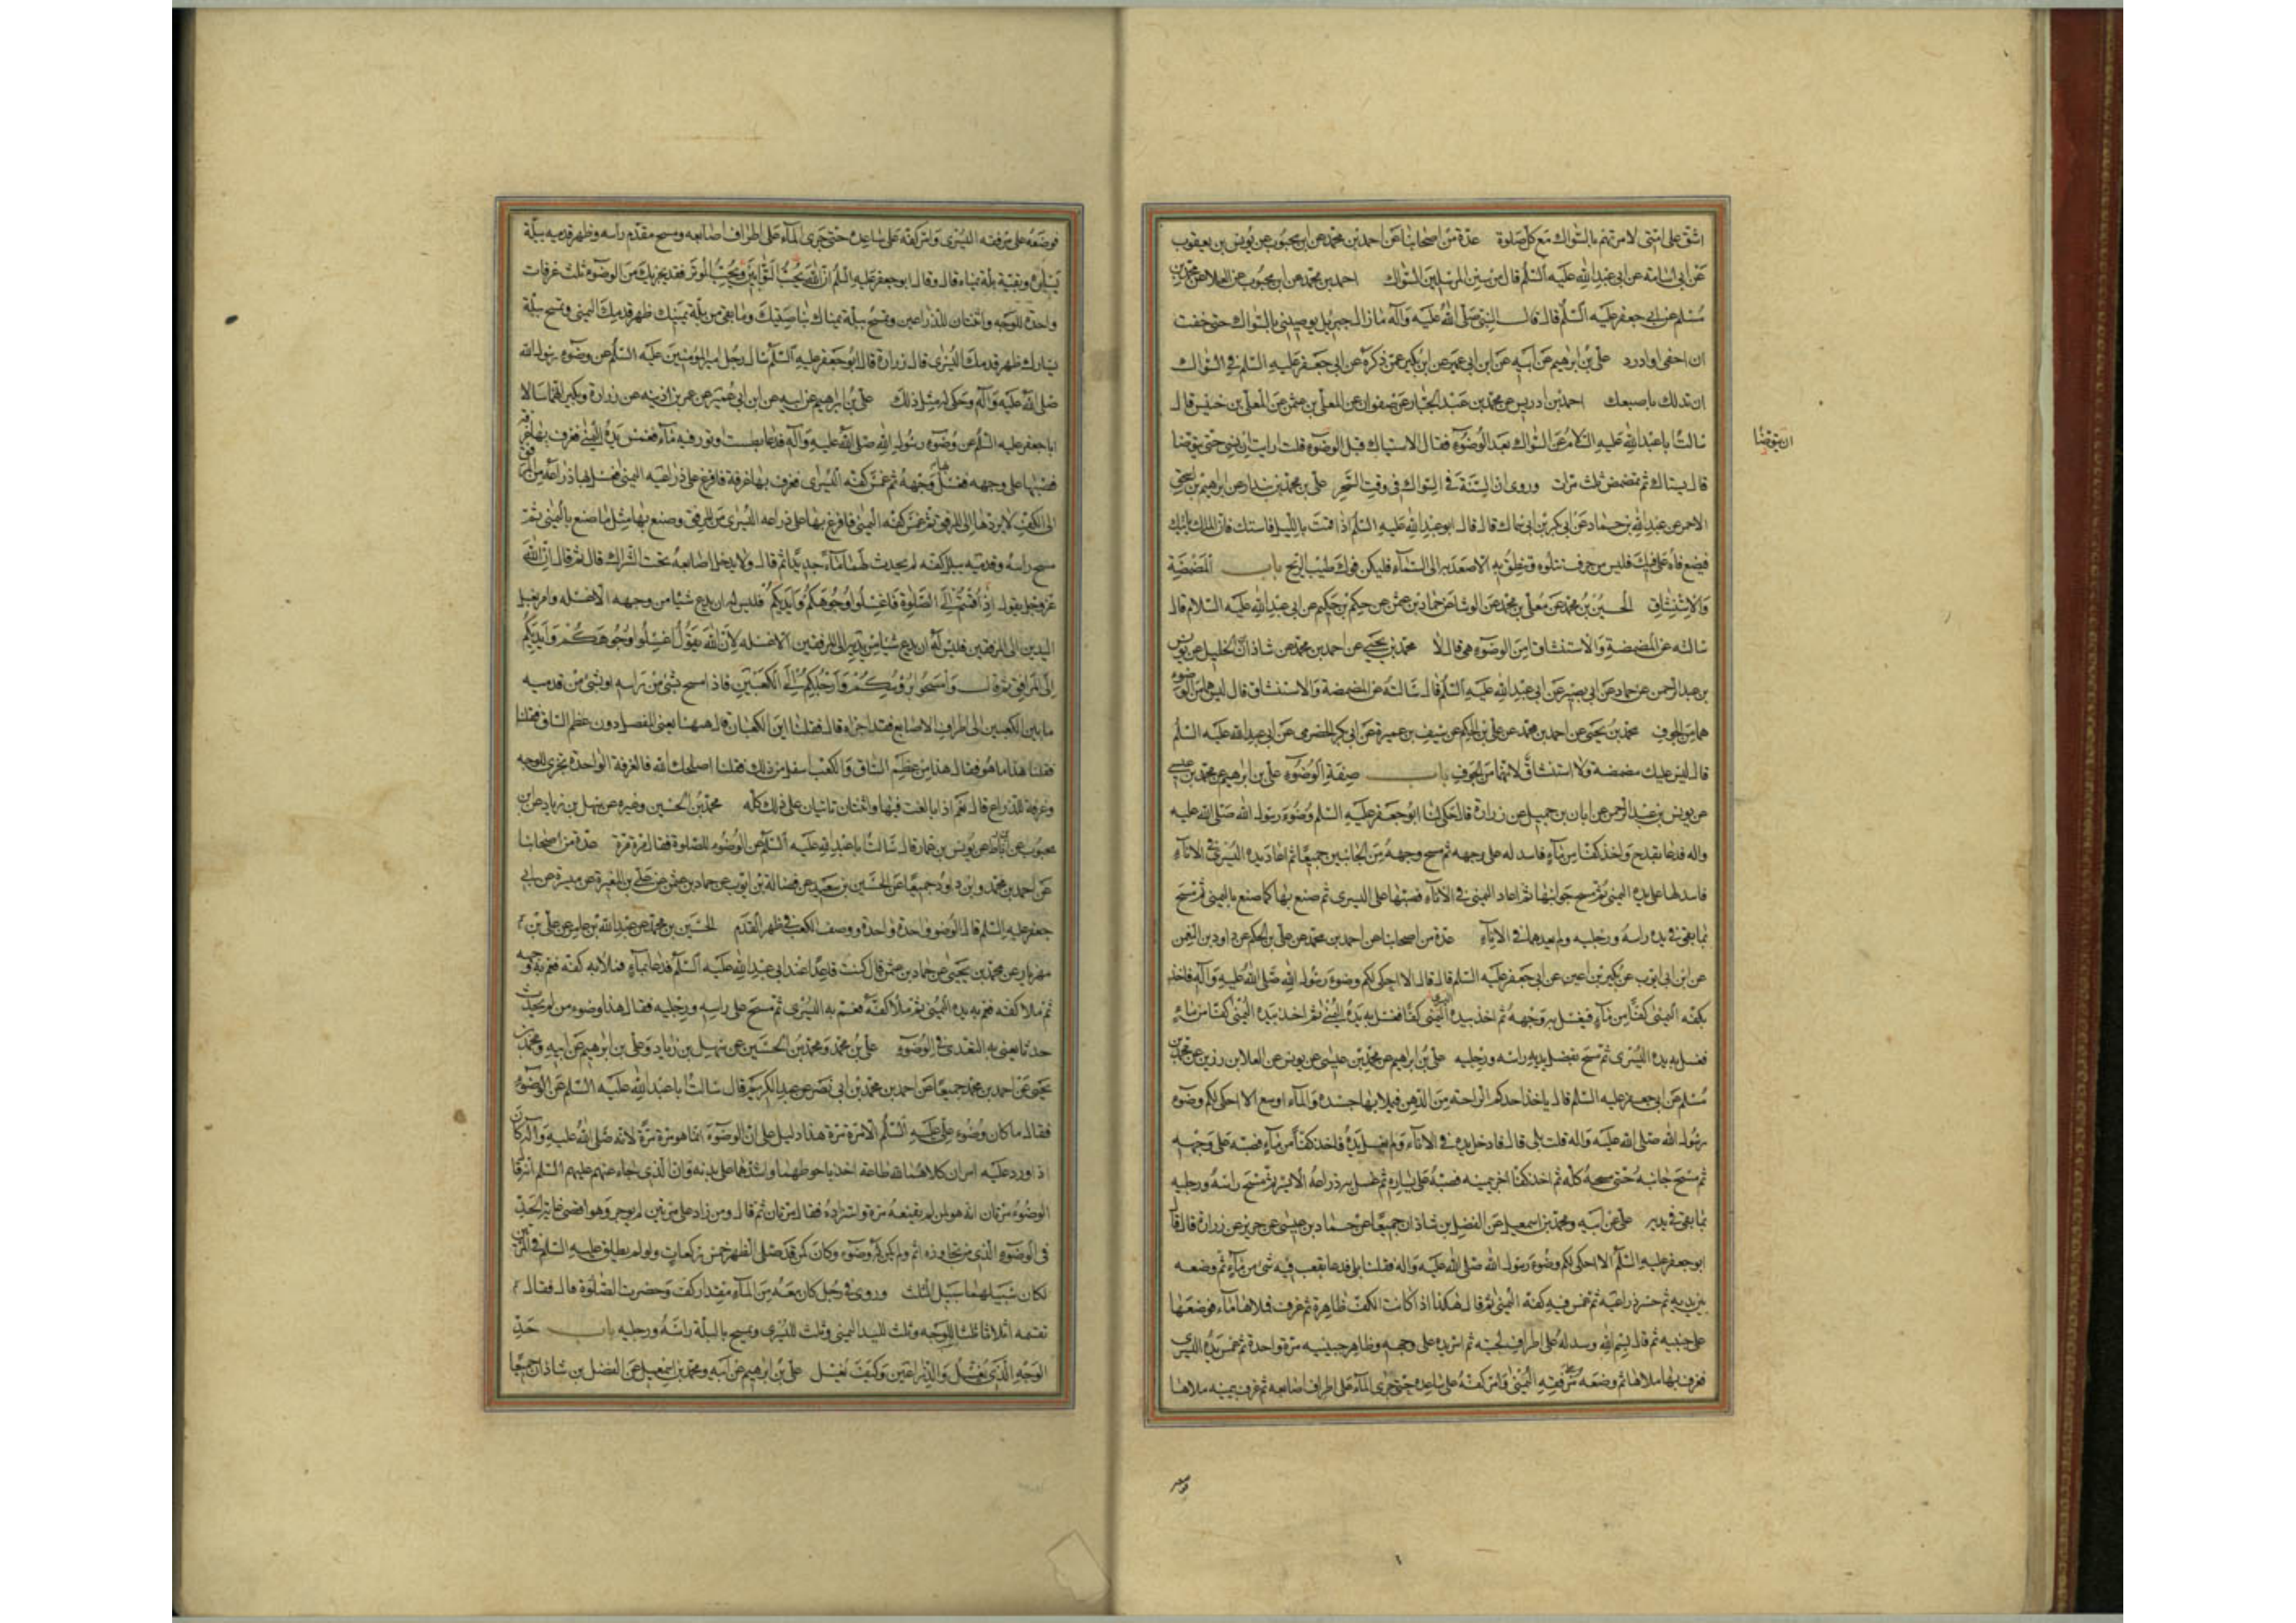 اشق على امتى لامرتهم بالسواك مع كل صلوة عدة من اصحابنا عن احمد بن محمد عن ابن محبوب عن يونس بن يعقوب
عن ابى اسامة عن ابى عبدالله عليه السلم قال من سنن المرسلين السواك احمد بن محمد عن ابن محبوب عن العلا عن محمد بن
مسلم عن ابى جعفر عليه السلم قال قال النبى صلى الله عليه وآله ما زال جبرئيل يوصينى بالسواك حتى خفت
ان احفى او ادرد على بن ابرهيم عن ابيه عن ابن ابى عمير عن ابن بكير عمن ذكره عن ابى جعفر عليه السلم فى السواك
ان تدلك باصبعك احمد بن ادريس عن محمد بن عبد الجبار عن صفوان عن المعلى بن عثمن عن المعلى بن خنيس قال
سالت ابا عبدالله عليه السلام عن السواك بعد الوضوء فقال الاستياك قبل الوضوء قلت ارايت ان نسى حتى يتوضا
ان يتوضا
قال يستاك ثم يتمضمض ثلث مرات وروى ان السنة فى السواك فى وقت السحر على بن محمد بن بندار عن ابراهيم بن اسحق
الاحمر عن عبدالله بن حماد عن ابى بكر بن ابى سماك قال قال ابو عبدالله عليه السلم اذا قمت بالليل فاستك فان الملك ياتيك
فيضع فاه على فيك فليس من حرف تتلوه وتنطق به الا صعد به الى السماء فليكن فوك طيب الريح باب المضمضة
والاستنشاق الحسين بن محمد عن معلى بن محمد عن الوشا عن حماد بن عثمن عن حكم بن حكيم عن ابى عبدالله عليه السلام قال
سالته عن المضمضة والاستنشاق امن الوضوء هى قال لا محمد بن يحيى عن احمد بن محمد عن شاذان بن الخليل عن يونس
بن عبد الرحمن عن حماد عن ابى بصير عن ابى عبدالله عليه السلم قال سالته عن المضمضة والاستنشاق قال ليس هما من الوضوء
هما من الجوف محمد بن يحيى عن احمد بن محمد عن على بن الحكم عن سيف بن عميرة عن ابى بكر الحضرمى عن ابى عبدالله عليه السلم
قال ليس عليك مضمضة ولا استنشاق لانهما من الجوف باب صفة الوضوء على بن ابرهيم عن محمد بن عيسى
عن يونس بن عبد الرحمن عن ابان بن جميل عن زرارة قال حكى لنا ابو جعفر عليه السلم وضوء رسول الله صلى الله عليه
واله فدعا بقدح واخذ كفا من ماء فاسدله على وجهه ثم مسح وجهه من الجانبين جميعا ثم اعاد يده اليسرى فى الاناء
فاسدلها على يده اليمنى ثم مسح جوانبها ثم اعاد اليمنى فى الاناء فصبها على اليسرى ثم صنع بها كما صنع باليمنى ثم مسح
بما بقى فى يده راسه ورجليه ولم يعدهما فى الاناء عدة من اصحابنا عن احمد بن محمد عن على بن الحكم عن داود بن النعمن
عن ابن ابى ايوب عن بكير بن اعين عن ابى جعفر عليه السلم قال قال الا احكى لكم وضوء رسول الله صلى الله عليه وآله فاخذ
بكفه اليمنى كفا من ماء فغسل به وجهه ثم اخذ بيده اليسرى كفا فغسل به يده اليمنى ثم اخذ بيده اليمنى كفا من ماء
فغسل به يده اليسرى ثم مسح بفضل يديه راسه ورجليه على بن ابراهيم عن محمد بن عيسى عن يونس عن العلا بن رزين عن محمد بن
مسلم عن ابى جعفر عليه السلم قال ياخذ احدكم الراحة من الدهن فيملا بها جسده والماء اوسع الا احكى لكم وضوء
رسول الله صلى الله عليه واله قلت بلى قال فادخل يده فى الاناء ولم يغسل يده فاخذ كفا من ماء فصبه على وجهه
ثم مسح جانبه حتى مسحه كله ثم اخذ كفا اخر بيمينه فصبه على يساره ثم غسل به ذراعه الايمن ثم مسح راسه ورجليه
بما بقى فى يديه على عن ابيه ومحمد بن اسمعيل عن الفضل بن شاذان جميعا عن حماد بن عيسى عن حريز عن زرارة قال قال
ابو جعفر عليه السلم الا احكى لكم وضوء رسول الله صلى الله عليه واله فقلنا بلى فدعا بقعب فيه شىء من ماء ثم وضعه
بين يديه ثم حسر ذراعيه ثم غمس فيه كفه اليمنى ثم قال هكذا اذا كانت الكف ظاهرة ثم غرف فملاها ماء فوضعها
على جبينه ثم قال بسم الله وسدله على اطراف لحيته ثم امر يده على وجهه وظاهر جبينيه مرة واحدة ثم غمس يده اليسرى
فغرف بها ملاها ثم وضعه على مرفقه اليمنى وامر كفه على ساعده حتى جرى الماء على اطراف اصابعه ثم غرف بيمينه ملاها
فوضعه على مرفقه اليسرى وامر كفه على ساعده حتى جرى الماء على اطراف اصابعه ومسح مقدم راسه وظهر قدميه ببلة
يساره وبقية بلة يمناه قال وقال ابو جعفر عليه السلم ان الله يحب الوتر فقد يجزيك من الوضوء ثلث غرفات
واحدة للوجه واثنتان للذراعين وتمسح ببلة يمناك ناصيتك وما بقى من بلة يمينك ظهر قدمك اليمنى وتمسح ببلة
يسارك ظهر قدمك اليسرى قال زرارة قال ابو جعفر عليه السلم سال رجل امير المؤمنين عليه السلم عن وضوء رسول الله
صلى الله عليه وآله وحكى له مثل ذلك على بن ابراهيم عن ابيه عن ابن ابى عمير عن عمر بن اذينه عن زرارة وبكير انهما سالا
ابا جعفر عليه السلم عن وضوء رسول الله صلى الله عليه وآله فدعا بطست او تور فيه ماء فغمس يده اليمنى فغرف بها غرفة
فصبها على وجهه فغسل بها وجهه ثم غمس كفه اليسرى فغرف بها غرفة فافرغ على ذراعه اليمنى فغسل بها ذراعه من المرفق
الى الكف لا يردها الى المرفق ثم غمس كفه اليمنى فافرغ بها على ذراعه اليسرى من المرفق وصنع بها مثل ما صنع باليمنى ثم
مسح راسه وقدميه ببلل كفه لم يحدث لهما ماء جديدا ثم قال ولا يدخل اصابعه تحت الشراك قال ثم قال ان الله
عز وجل يقول اذا قمتم الى الصلوة فاغسلوا وجوهكم وايديكم فليس له ان يدع شيئا من وجهه الا غسله وامر بغسل
اليدين الى المرفقين فليس له ان يدع شيئا من يديه الى المرفقين الا غسله لان الله يقول اغسلوا وجوهكم وايديكم
الى المرافق ثم قال وامسحوا برؤسكم وارجلكم الى الكعبين فاذا مسح بشىء من راسه او بشىء من قدميه
ما بين الكعبين الى اطراف الاصابع فقد اجزاه قال فقلنا اين الكعبان قال ههنا يعنى المفصل دون عظم الساق فقلنا
فقلنا هذا ما هو فقال هذا من عظم الساق والكعب اسفل من ذلك فقلنا اصلحك الله فالغرفة الواحدة تجزى للوجه
وغرفة للذراع قال نعم اذا بالغت فيها واثنتان تاتيان على ذلك كله محمد بن الحسين وغيره عن سهل بن زياد عن ابن
محبوب عن ابن رباط عن يونس بن عمار قال سالت ابا عبدالله عليه السلم عن الوضوء للصلوة فقال مرة مرة عدة من اصحابنا
عن احمد بن محمد وابى داود جميعا عن الحسين بن سعيد عن فضالة بن ايوب عن حماد بن عثمن عن على بن المغيرة عن ميسرة عن ابى
جعفر عليه السلم قال الوضوء واحدة واحدة ووصف الكعب فى ظهر القدم الحسين بن محمد عن عبدالله بن عامر عن على بن
مهزيار عن محمد بن يحيى عن حماد بن عثمن قال كنت قاعدا عند ابى عبدالله عليه السلم فدعا بماء فملا به كفه فعم به وجهه
ثم ملا كفه فعم به يده اليمنى ثم ملا كفه فعم به اليسرى ثم مسح على راسه ورجليه فقال هذا وضوء من لم يحدث
حدثا يعنى به التعدى فى الوضوء على بن محمد ومحمد بن الحسين عن سهل بن زياد وعلى بن ابراهيم عن ابيه ومحمد بن
يحيى عن احمد بن محمد جميعا عن احمد بن محمد بن ابى نصر عن عبد الكريم قال سالت ابا عبدالله عليه السلم عن الوضوء
فقال ما كان وضوء على عليه السلم الا مرة مرة هذا دليل على ان الوضوء انما هو مرة مرة لانه صلى الله عليه وآله كان
اذا ورد عليه امران كلاهما لله طاعة اخذ باحوطهما واشدهما على بدنه وان الذى جاء عنهم عليهم السلم انه قال
الوضوء مرتان انه هو لمن لم يقنعه مرة واستزاده فقال مرتان ثم قال ومن زاد على مرتين لم يوجر وهو اقصى غاية الحد
فى الوضوء الذى من تجاوزه اثم ولم يكن له وضوء وكان كمن قد صلى الظهر خمس ركعات ولو لم يطلق عليه السلم فى المرتين
لكان سبيلهما سبيل الثلث وروى فى رجل كان معه من الماء مقدار كف وحضرت الصلوة قال فقال
تقسمه اثلاثا ثلث للوجه وثلث لليد اليمنى وثلث لليسرى وتمسح بالبلة راسه ورجليه باب حد
الوجه الذى يغسل والذراعين وكيف تغسل على بن ابرهيم عن ابيه ومحمد بن اسمعيل عن الفضل بن شاذان جميعا